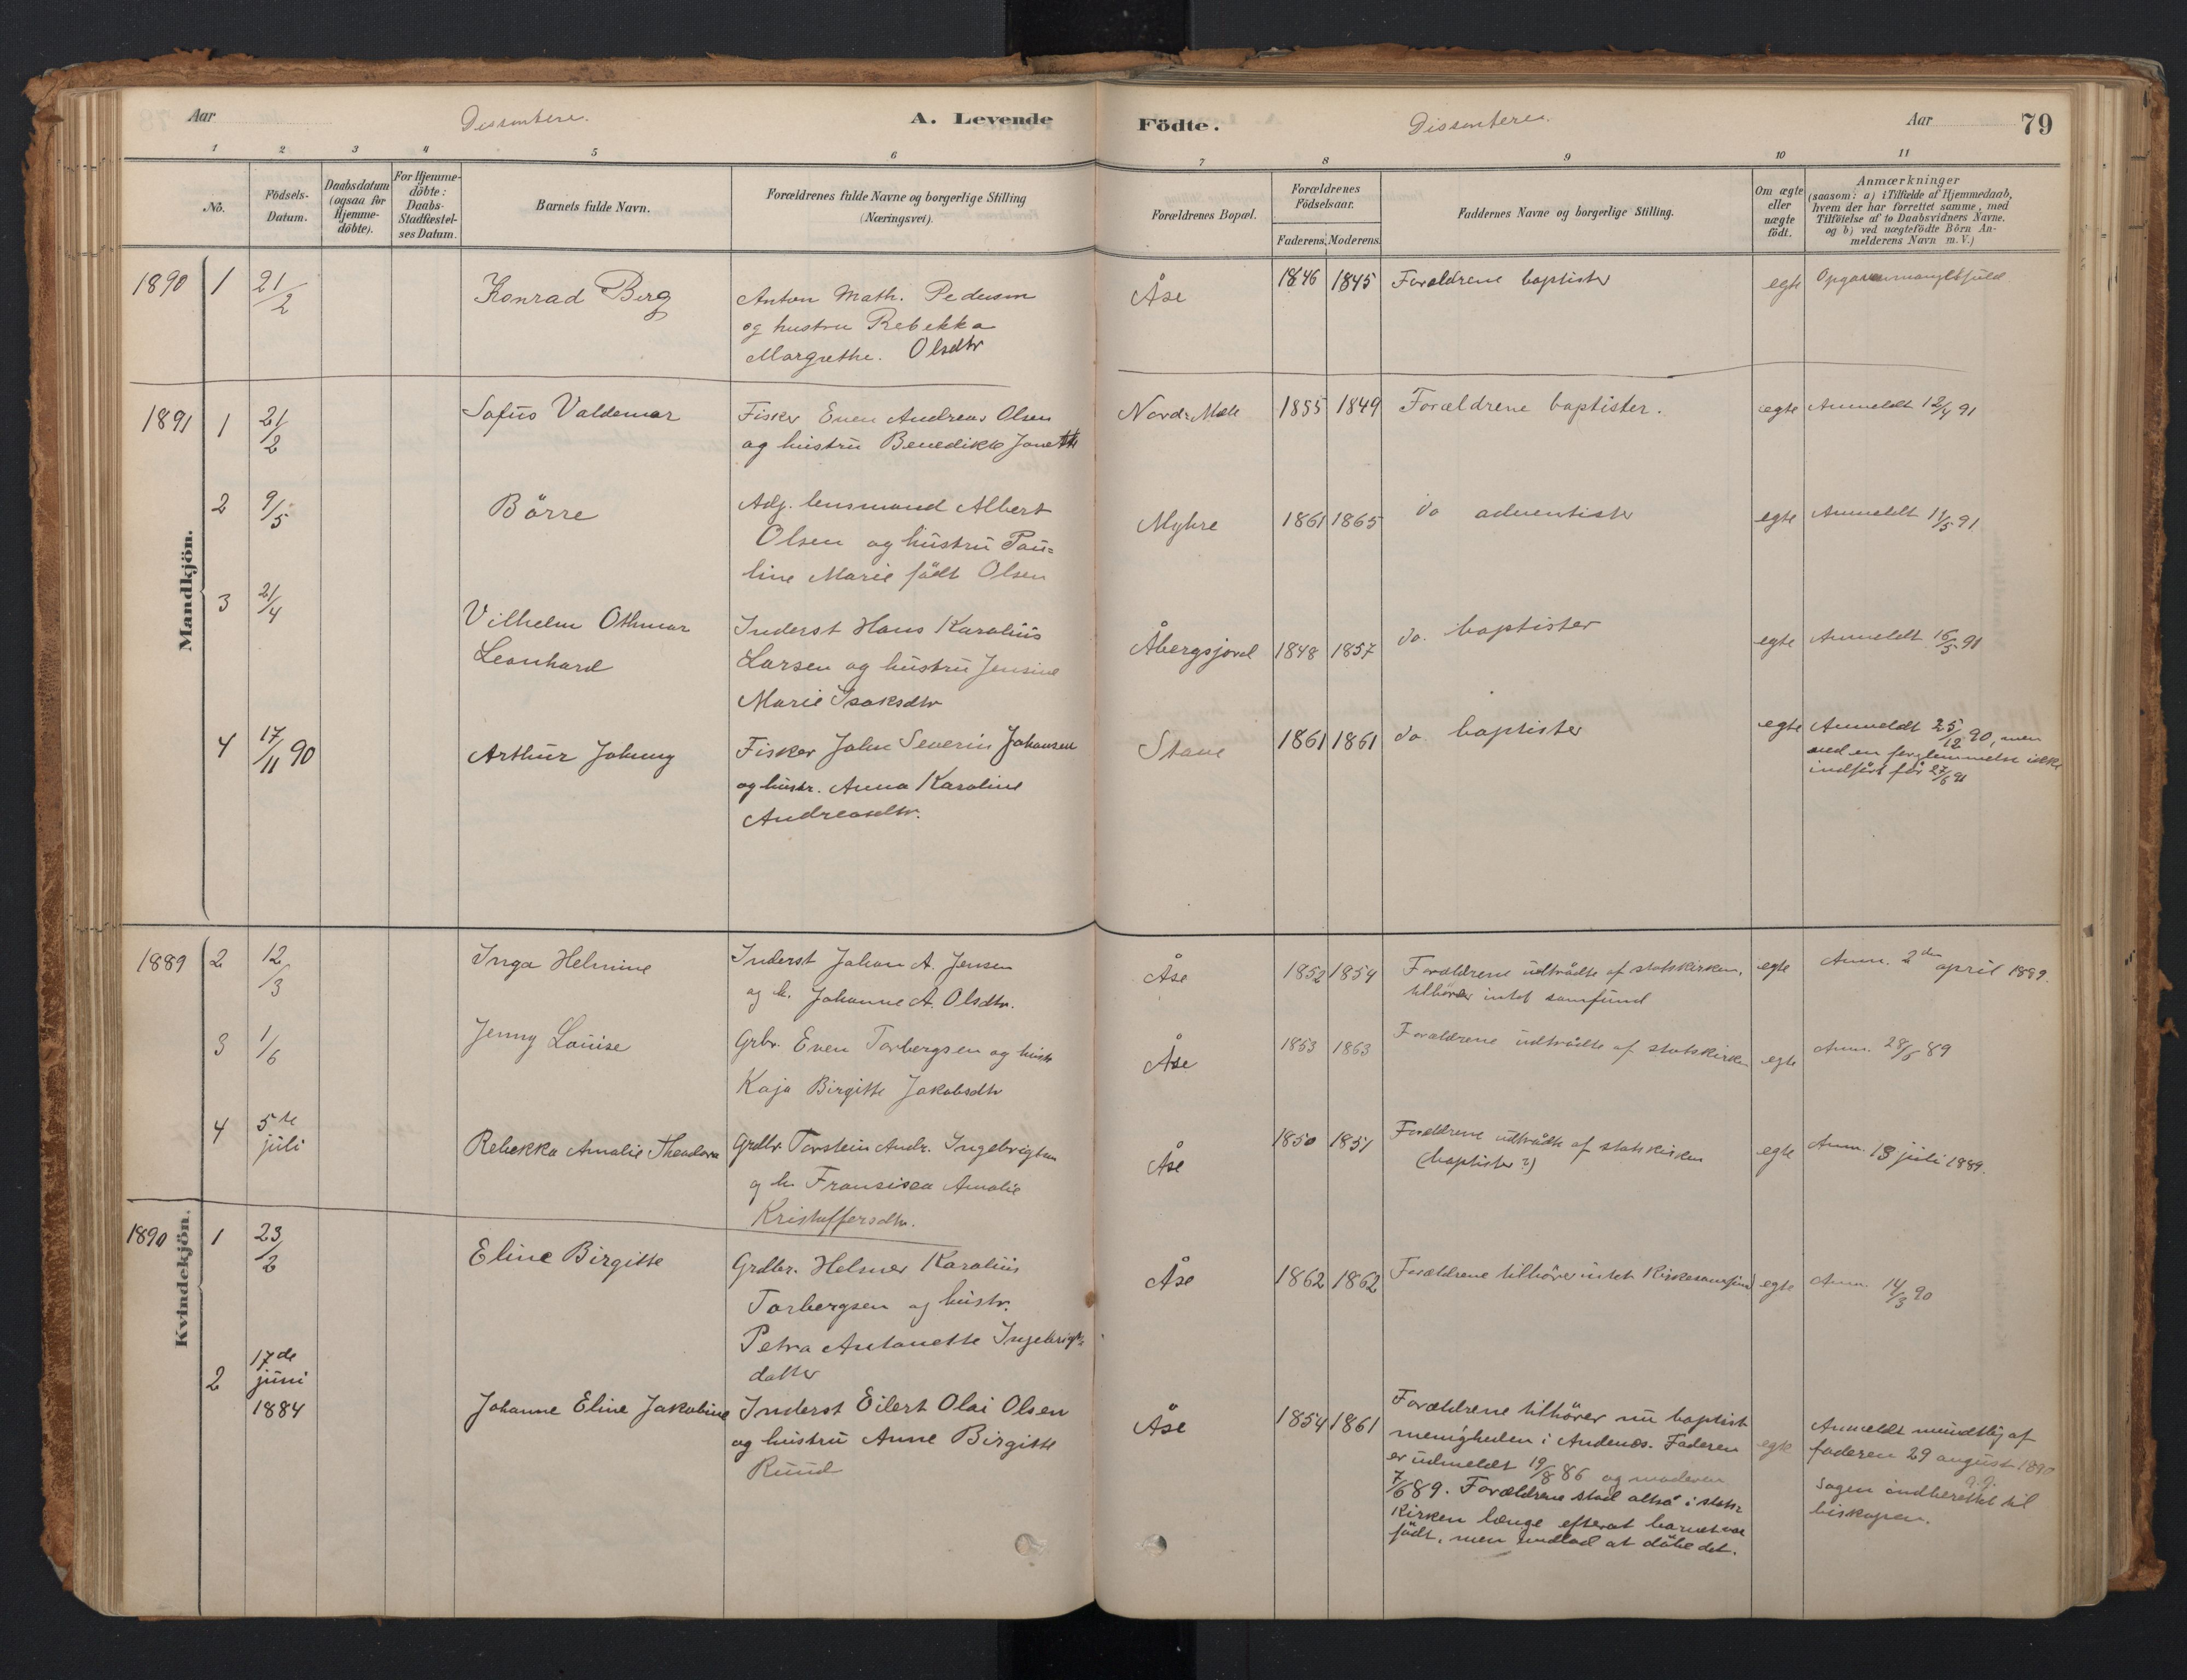 Aar
Dissentere.
A. Levende
Födte.
Dissentere.
Aar
79
1 2 3 4 5 6 7 8 9 10 11
No.
Födsels-Datum.
Daabsdatum (ogsaa for Hjemme-döbte).
For Hjemme-döbte: Daabs-Stadfæstel-ses Datum.
Barnets fulde Navn.
Forældrenes fulde Navne og borgerlige Stilling (Næringsvei).
Forældrenes Bopæl.
Forældrenes Födselsaar.
Faderens. Moderens.
Faddernes Navne og borgerlige Stilling.
Om ægte eller uægte födt.
Anmærkninger
(saasom: a) i Tilfælde af Hjemmedaab,
hvem der har forrettet samme, med
Tilföielse af to Daabsvidners Navne.
og b) ved uægtefödte Börn An-
melderens Navn m. V.)
Mandkjön.
1890 1 21/2 Konrad Berg
Anton Math. Pedersen
og hustru Rebekka
Margrethe. Olsdtr
Åse 1846 1845 Forældrene baptister egte
1891 1 21/2 Sofus Valdemar
Fisker Even Andreas Olsen
og hustru Benedikte Janette
Nordr. Mele 1855 1849 Forældrene baptister. ægte Anmeldt 12/4 91
2 9/5 Börre
Adj. lensmand Albert
Olsen og hustru Pau=
line Marie födt Olsen
Myhre 1861 1865 do adventister egte Anmeldt 11/5 91
3 21/4 Vilhelm Othmar
Leonhard
Inderst Hans Karolius
Larsen og hustru Jensine
Marie Isaksdtr
Åbergsjord 1848 1857 do. baptister egte Anmeldt 16/5 91
4 17/11 90 Arthur Johnny
Fisker John Severin Johansen
og hustr. Anna Karoline
Andreasdtr.
Stave 1861 1861 do baptister egte Anmeldt 25/12 90, men
ved en forglemmelse ikke
indfört för 27/6 91
Kvindekjön.
1889 2 12/3 Inga Helmine
Inderst Johan A. Jensen
og h. Johanne A. Olsdtr.
Åse 1852 1854 Forældrene udtrådte af statskirken,
tilhörer intet samfund
egte Anm. 2den april 1889.
3 1/6 Jenny Louise
Grbr. Even Torbergsen og hustr
Kaja Birgitte Jakobsdtr
Åse 1853 1863 Forældrene udtrådte af statskirken egte Anm. 28/6 89
4 5te juli Rebekka Amalie Theodora
Grdbr. Torstein Andr. Ingebrigtsen
og h. Fransisca Amalie
Kristoffersdtr.
Åse 1850 1851 Forældrene udtrådt af statskirken
(baptister?)
egte Anm. 13 juli 1889.
1890 1 23/2 Eline Birgitte
Grdbr. Helmer Karolius
Torbergsen og hustr.
Petra Antonette Ingebrigts
datter
Åse 1862 1862 Forældrene tilhörer intet Kirkesamfund egte Anm. 14/3 90
2 17de juni 1884 Johanne Eline Jakobine
Inderst Eilert Olai Olsen
og hustru Anne Birgitte
Ruud
Åse 1854 1861 Forældrene tilhörer nu baptist
menigheden i Andenæs. Faderen
er udmeldt 19/8 86 og moderen
7/6 89. Forældrene stod altså i stats=
kirken længe efterat barnet var
födt, men undlod at döbe det.
egte
Anmeldt mundtlig af
faderen 29 august 1890
Sagen indberettet til
biskopen.